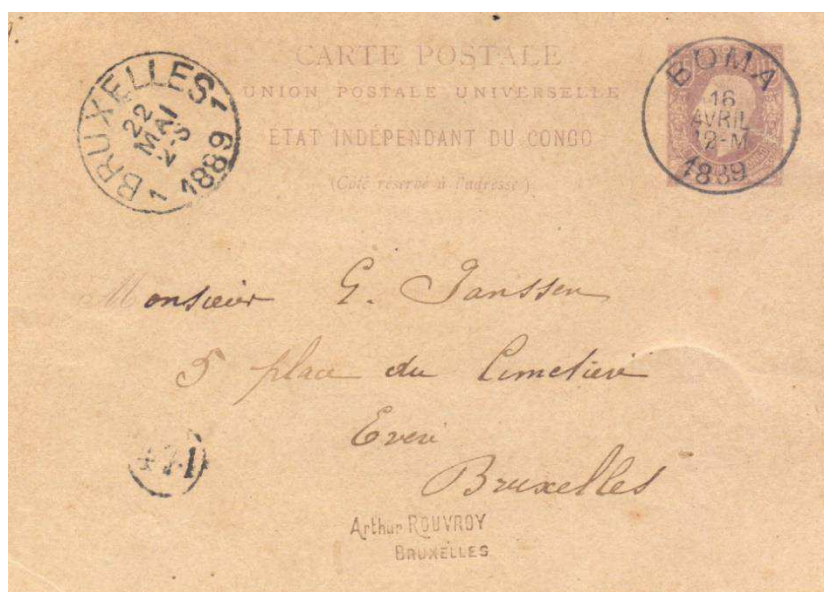 CARTE POSTALE
UNION POSTALE UNIVERSELLE
ETAT INDÉPENDANT DU CONGO
(Côté réservé à l'adresse)
BRUXELLES 1
22
MAI
2-S
1889
1
BOMA
16
AVRIL
12-M
1889
Monsieur G. Janssen
5 place du Cimetière
Evere
Bruxelles
Arthur ROUVROY
BRUXELLES